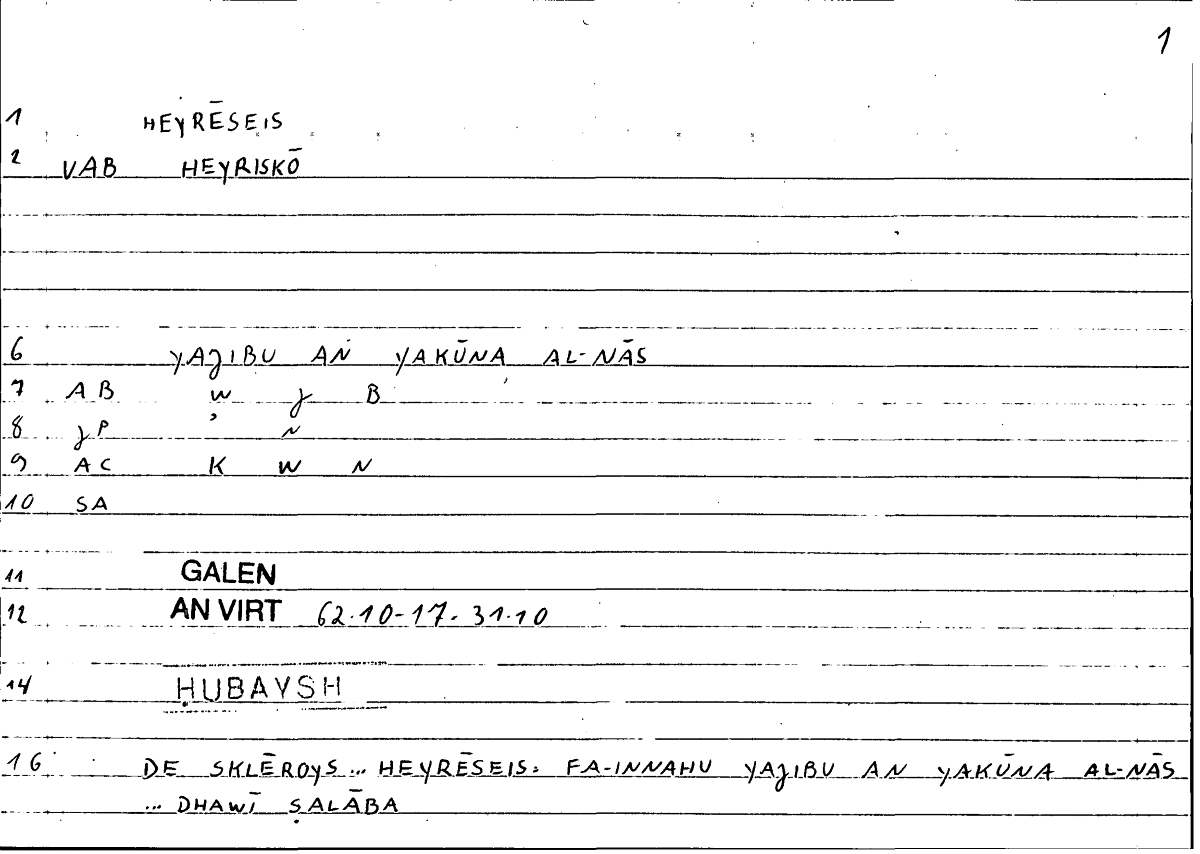 1
1 HEYRĒSEIS
2 VAB HEYRISKŌ
6 YAJIBU AN YAKŪNA AL-NĀS
7 AB W J B
8 JP ʾ N
9 AC K W N
10 SA
11 GALEN
12 AN VIRT 62.10-17. 31.10
14 ḤUBAYSH
16 DE SKLĒROYS... HEYRĒSEIS: FA-INNAHU YAJIBU AN YAKŪNA AL-NĀS
... DHAWĪ ṢALĀBA